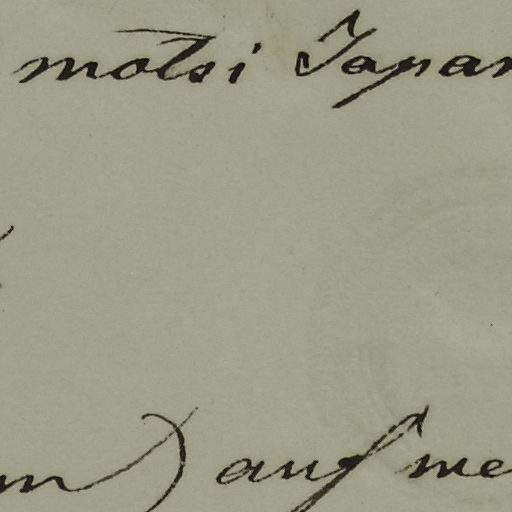 motsi Japan
m) auf me